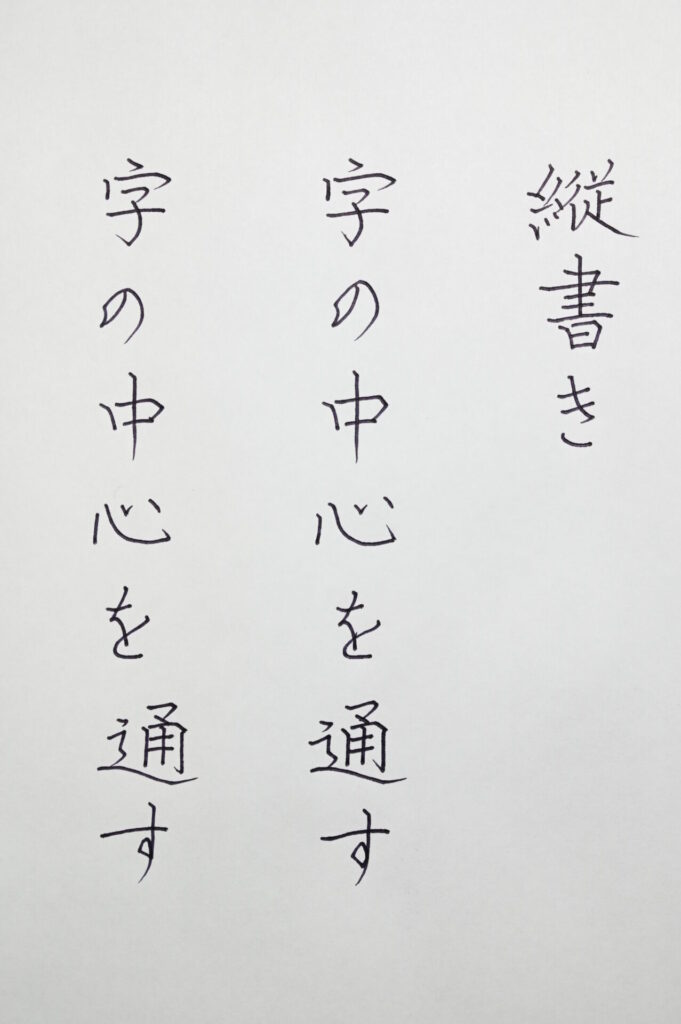 縦書き
字の中心を通す
字の中心を通す